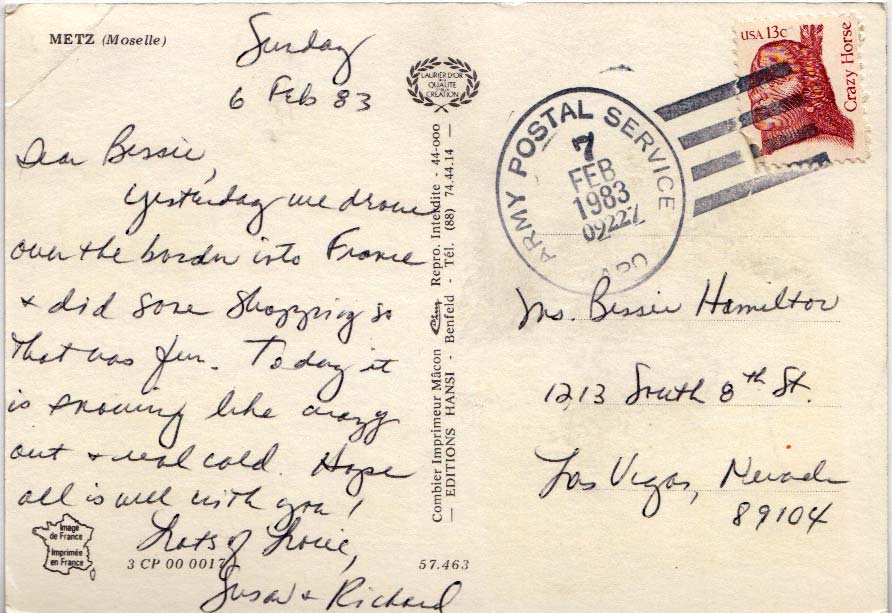 METZ (Moselle)
Sunday
6 Feb 83
Dear Bessie,
Yesterday we drove
over the border into France
& did some shopping so
that was fun. Today it
is snowing like crazy
out & real cold. Hope
all is well with you!
Lots of Love,
Susan & Richard
Image
de France
Imprimée
en France
3 CP 00 0017
57.463
LAURIER D'OR
DE LA
QUALITÉ
CRÉATION
Combier Imprimeur Mâcon Cim Repro. Interdite - 44-000
— EDITIONS HANSI - Benfeld - Tél. (88) 74.44.14 —
ARMY POSTAL SERVICE
7
FEB
1983
0922Z
APO
USA 13c
Crazy Horse
Ms. Bessie Hamilton
1213 South 8th St.
Las Vegas, Nevada
89104